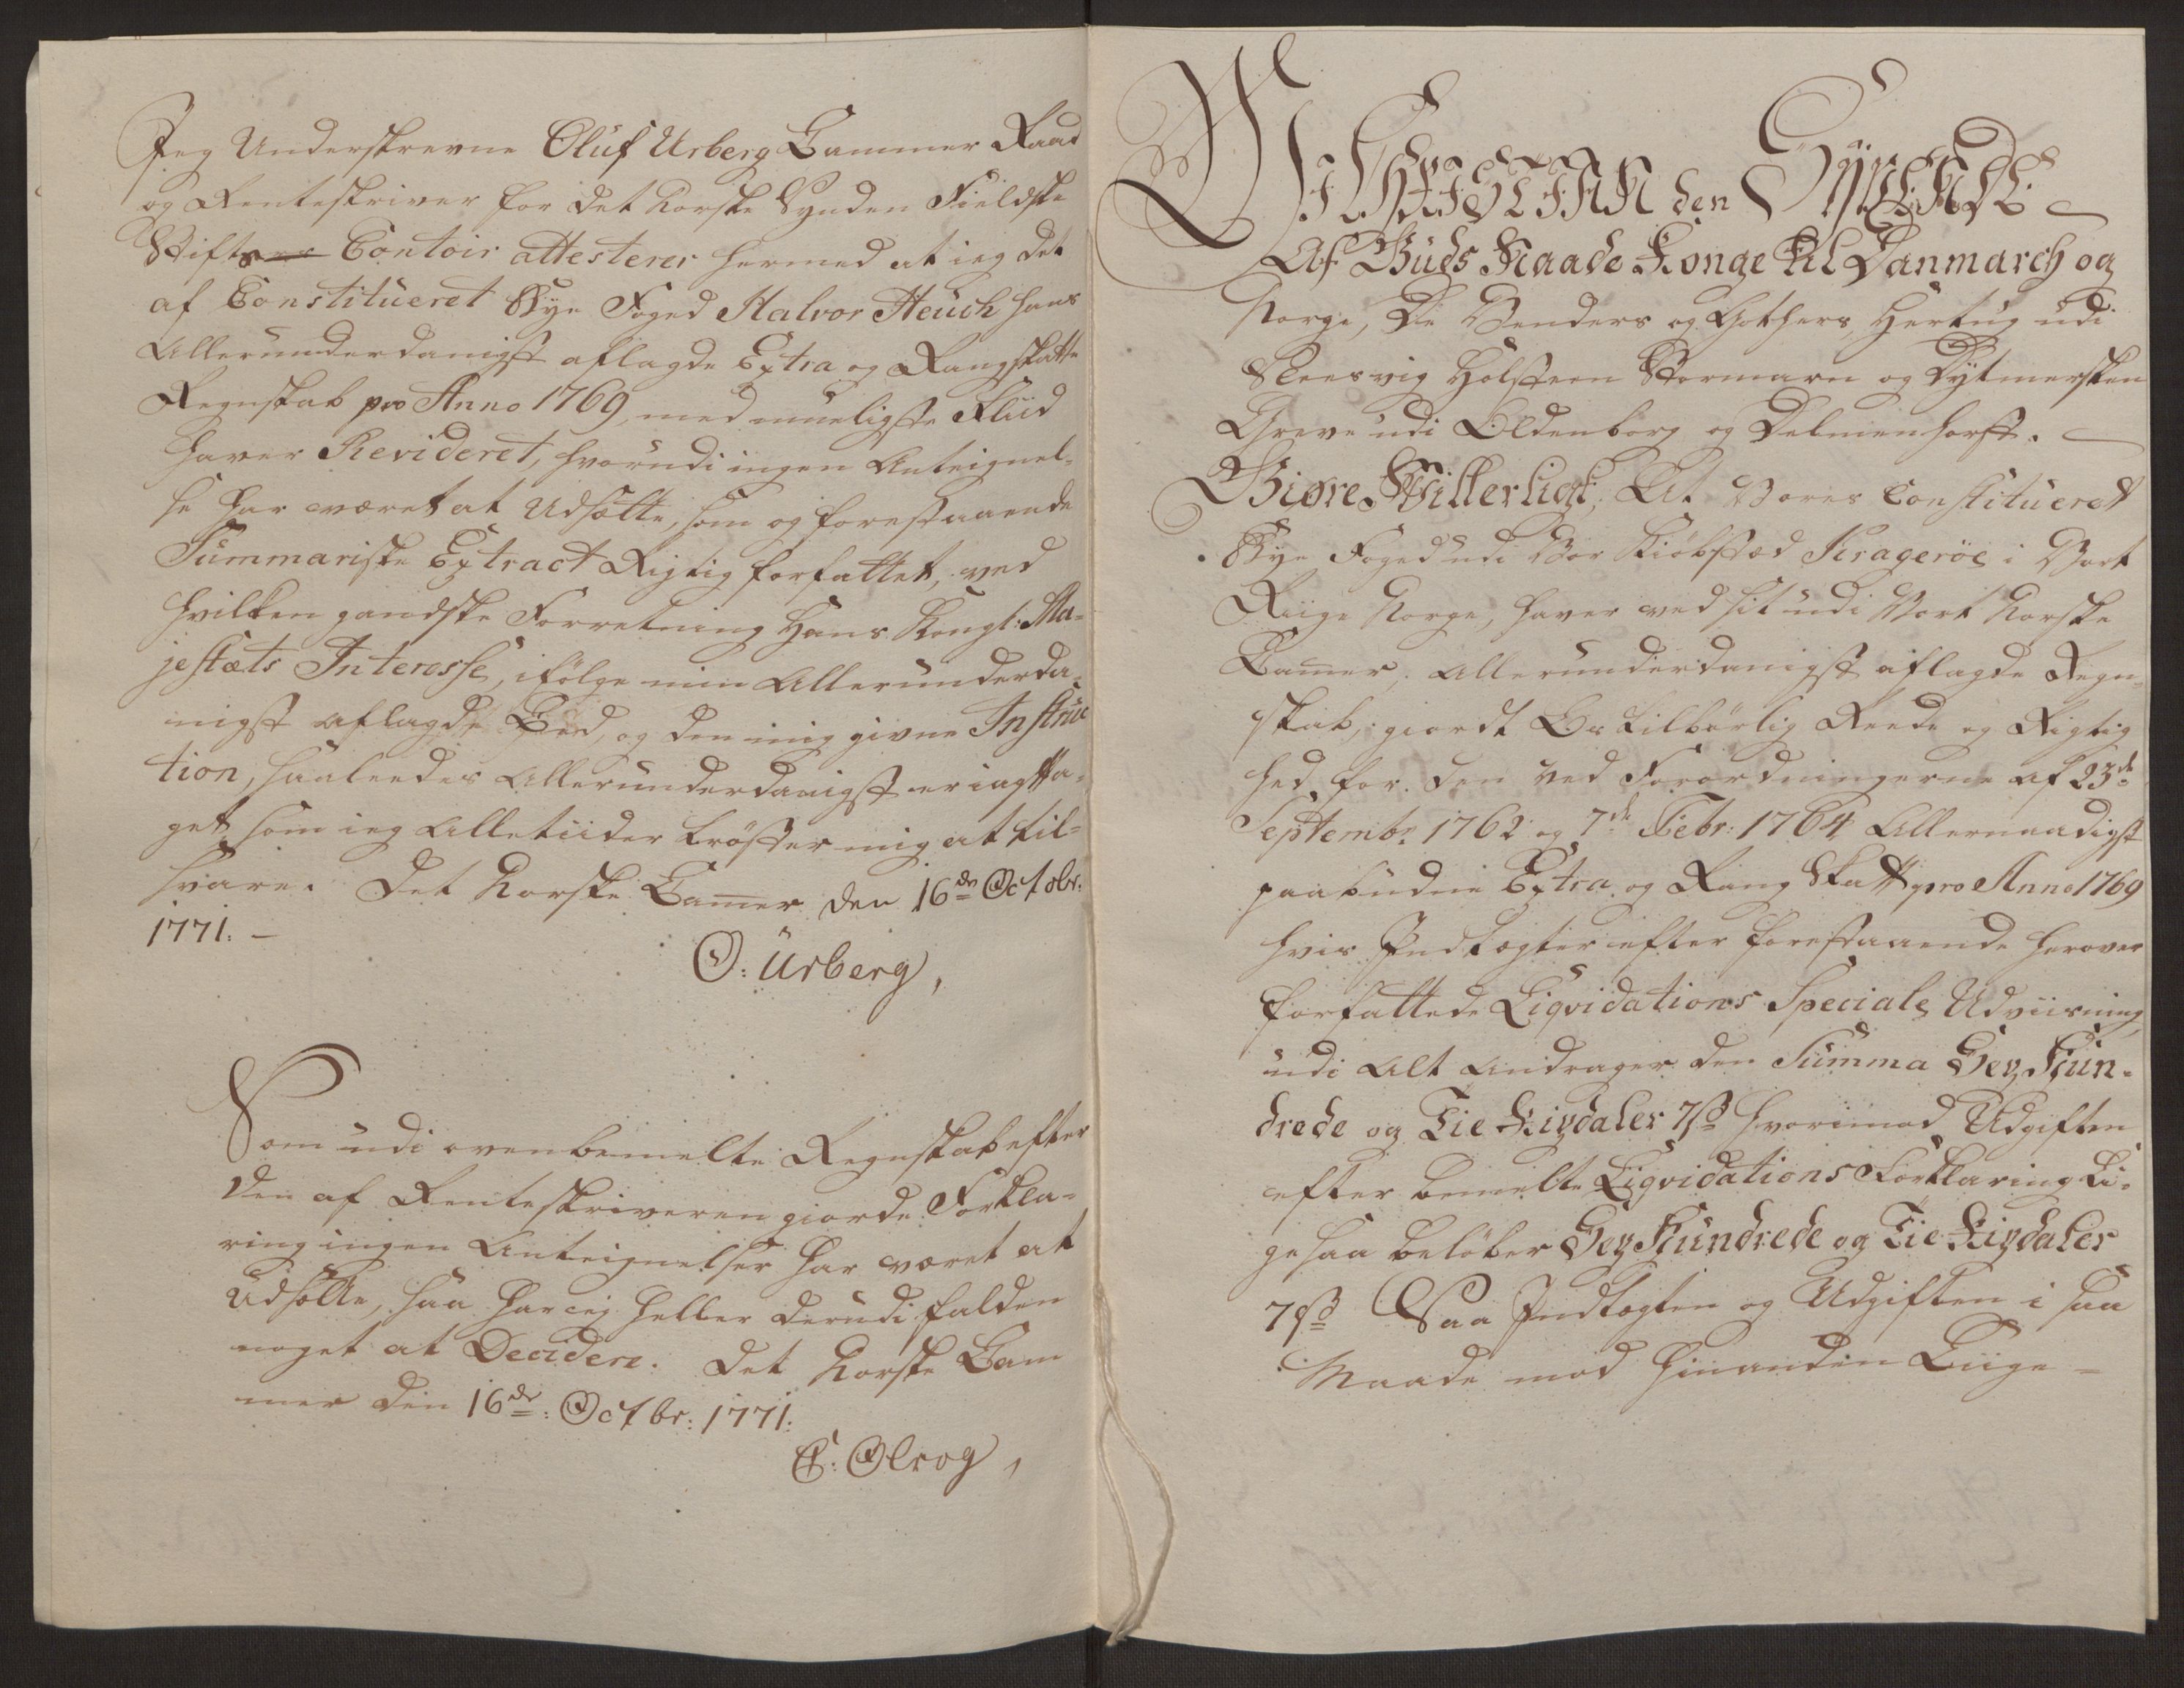 Jeg Underskrevne Oluf Urberg Cammer Raad
og Renteskriver for det Norske Synden Fieldske
Stifts Contoir attesterer hermed at ieg det
af Constitueret Bye Foged Halvor Heuch hans
Allerunderdanigst aflagde Extra og Rangskatte
Regnskab pro Anno 1769, med mueligste Fliid
haver Revideret, hvorudi ingen Anteignel-
se har været at Udsætte, som og forestaaende
Summariske Extract Rigtig forfattet, ved
hvilken gandske Forretning Hans Kongl: Ma-
jestæts Interesse, ifölge min Allerunderda-
nigst aflagde Eed, og den mig givne Instruc
tion, saaleedes Allerunderdanigst er iagtta-
get, som ieg Alletiider tröster mig at til-
svare. Det Norske Camer den 16de Octobr:
1771. -
O: Urberg,
Som udi ovenbemelte Regnskab efter
den af Renteskriveren giorde Forkla-
ring ingen Anteignelser har været at
Udsætte, saa har ej heller derudi falden
noget at Decidere. Det Norske Cam
mer den 16de: Octbr: 1771.
C: Olrog,
Wi CHRISTIAN den SYVENDE
Af Guds Naade Konge til Danmarch og
Norge, De Venders og Gothers, Hertug udi
Sleesvig Holsteen Stormarn og Dytmersken
Greve udi Oldenborg og Delmenhorst.
Giøre Witterligt, At Vores Constitueret
Bye Foged udi Vor Kiöbstæd Krageröe i Vort
Riige Norge, haver ved sit udi Vort Norske
Camer, Allerunderdanigst aflagde Regn-
skab, giordt Os tilbörlig Reede og Rigtig
hed, for den ved Forordningerne af 23de
Septembr 1762 og 7de Febr: 1764 Allernaadigst
paabudne Extra og Rang Skatt pro Anno 1769
hvis Indtægter efter forestaaende herover
forfattede Liqvidations Speciale Udviisning,
udi Alt Andrager den Summa Sex Hun-
drede og Tie Rixdaler 7 ß hvorimod Udgiften
efter bemelte Liqvidations Forklaring Li-
gesaa belöber Sex Hundrede og Tie Rixdaler
7 ß Saa Indtægten og Udgiften i saa
Maade mod hinanden Liige-